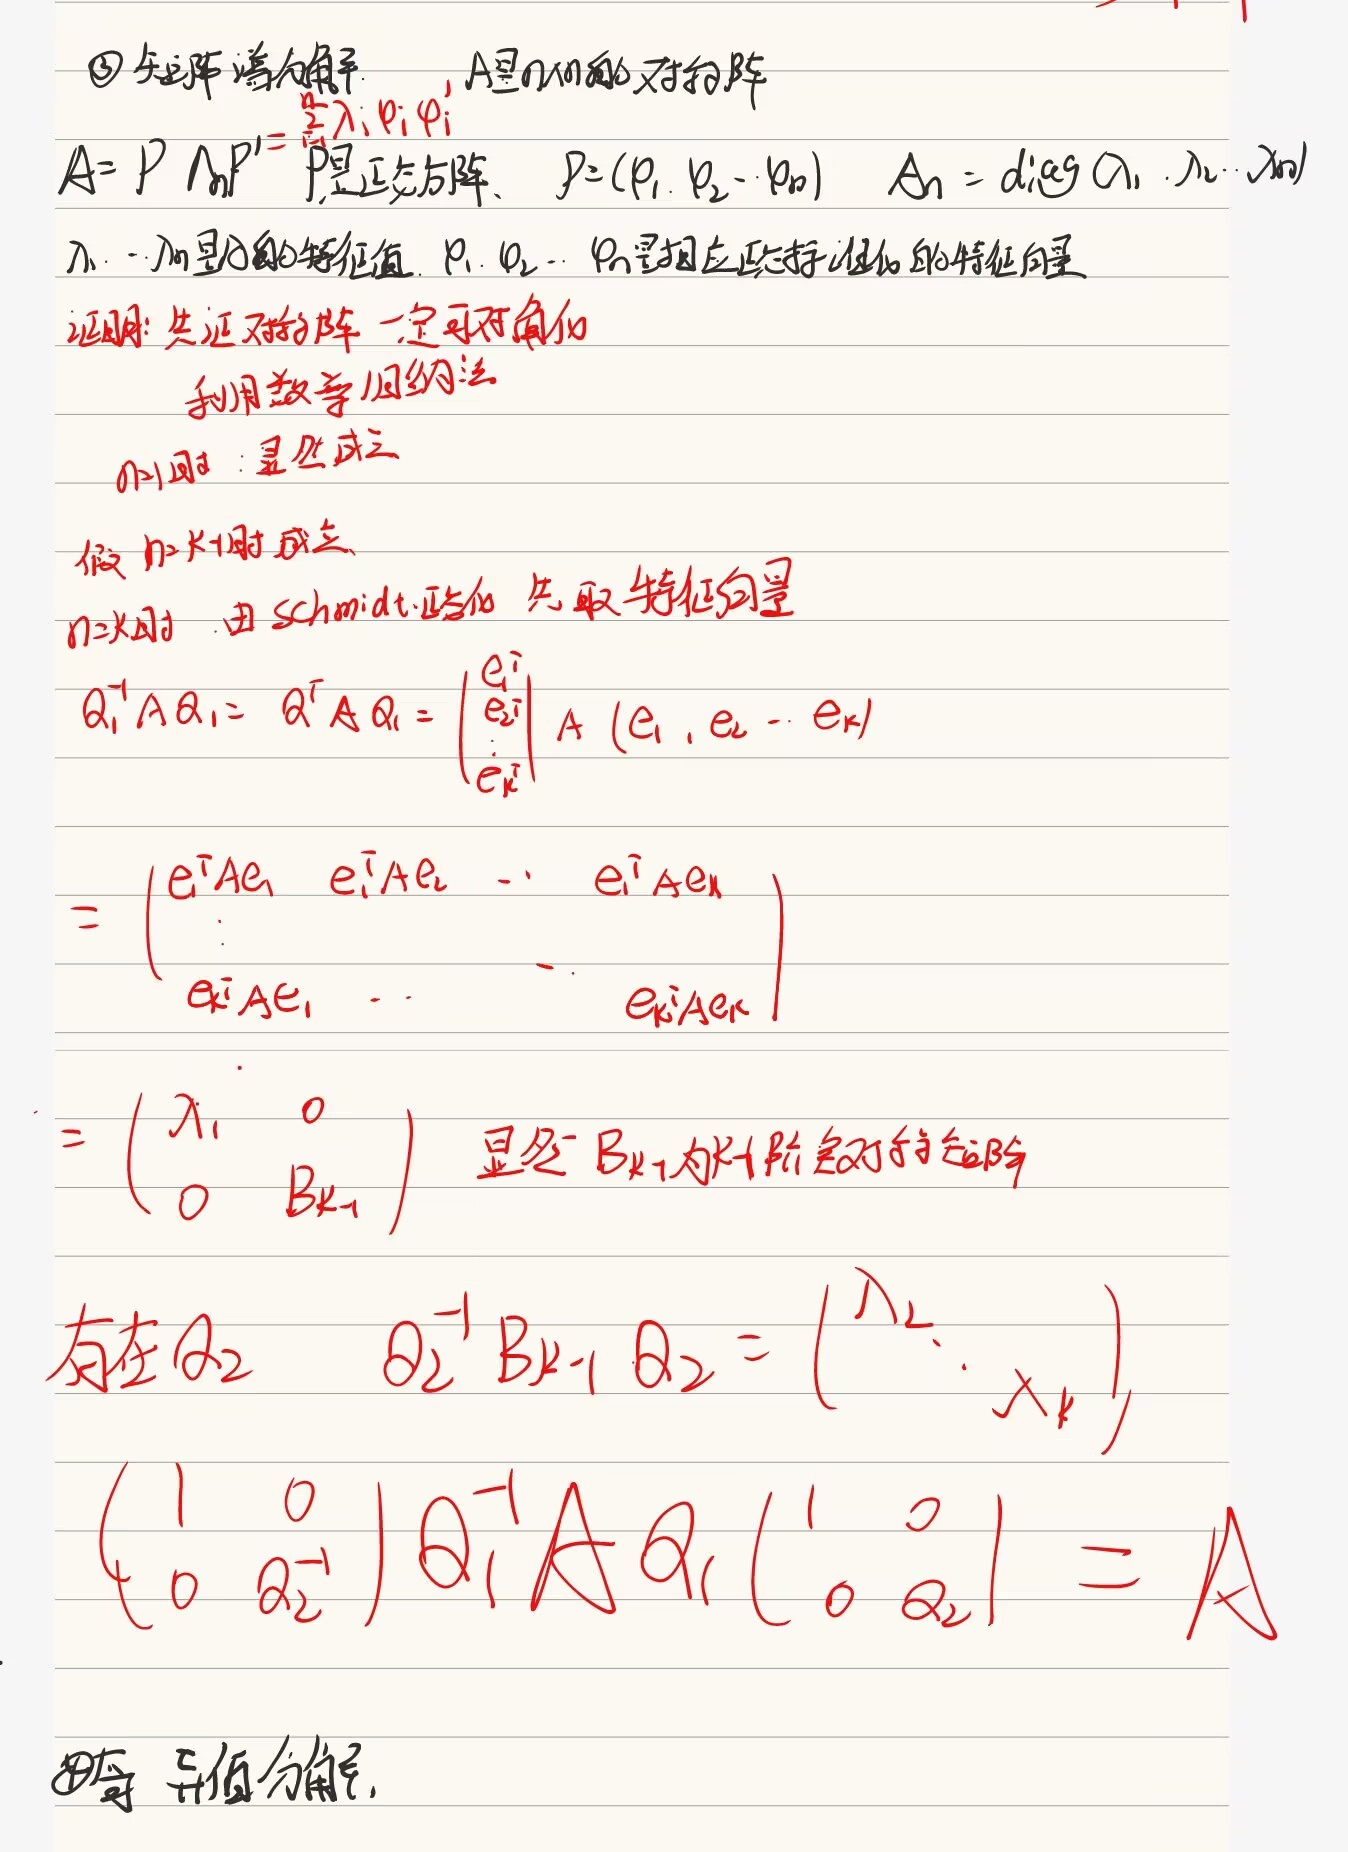 ③ 矩阵谱分解. A是n×n的对称阵
= Σ_{i=1}^{n} λᵢφᵢφᵢ'
A = P ΛₙP' P是正交方阵、 P=(φ₁. φ₂-- φₙ) Λₙ = diag(λ₁. λ₂.. λₙ)
λ₁ … λₙ是A的特征值. φ₁. φ₂… φₙ是相应正态标准化的特征向量
证明: 先证对称阵一定可对角化
利用数学归纳法
n=1时: 显然成立
假设 n=k-1时成立、
n=k时 由schmidt正交化 先取特征向量
Q₁⁻¹AQ₁ = QᵀAQ₁ = (e₁ᵀ e₂ᵀ ⋮ eₖᵀ) A (e₁, e₂ … eₖ)
= (e₁ᵀAe₁ e₁ᵀAe₂ … e₁ᵀAeₖ
⋮ …
eₖᵀAe₁ … eₖᵀAeₖ)
= (λ₁ 0
0 Bₖ₋₁) 显然 Bₖ₋₁为k-1阶实对称矩阵
存在Q₂ Q₂⁻¹Bₖ₋₁Q₂ = (λ₂ ⋱ λₖ)
(1 0
0 Q₂⁻¹) Q₁⁻¹AQ₁ (1 0
0 Q₂) = Λ
④ 奇异值分解.